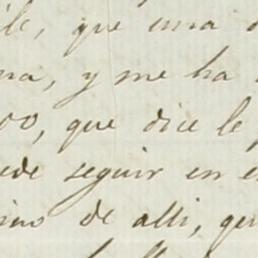 que una
na, y me ha
que dice le
ede seguir en
ino de alli,